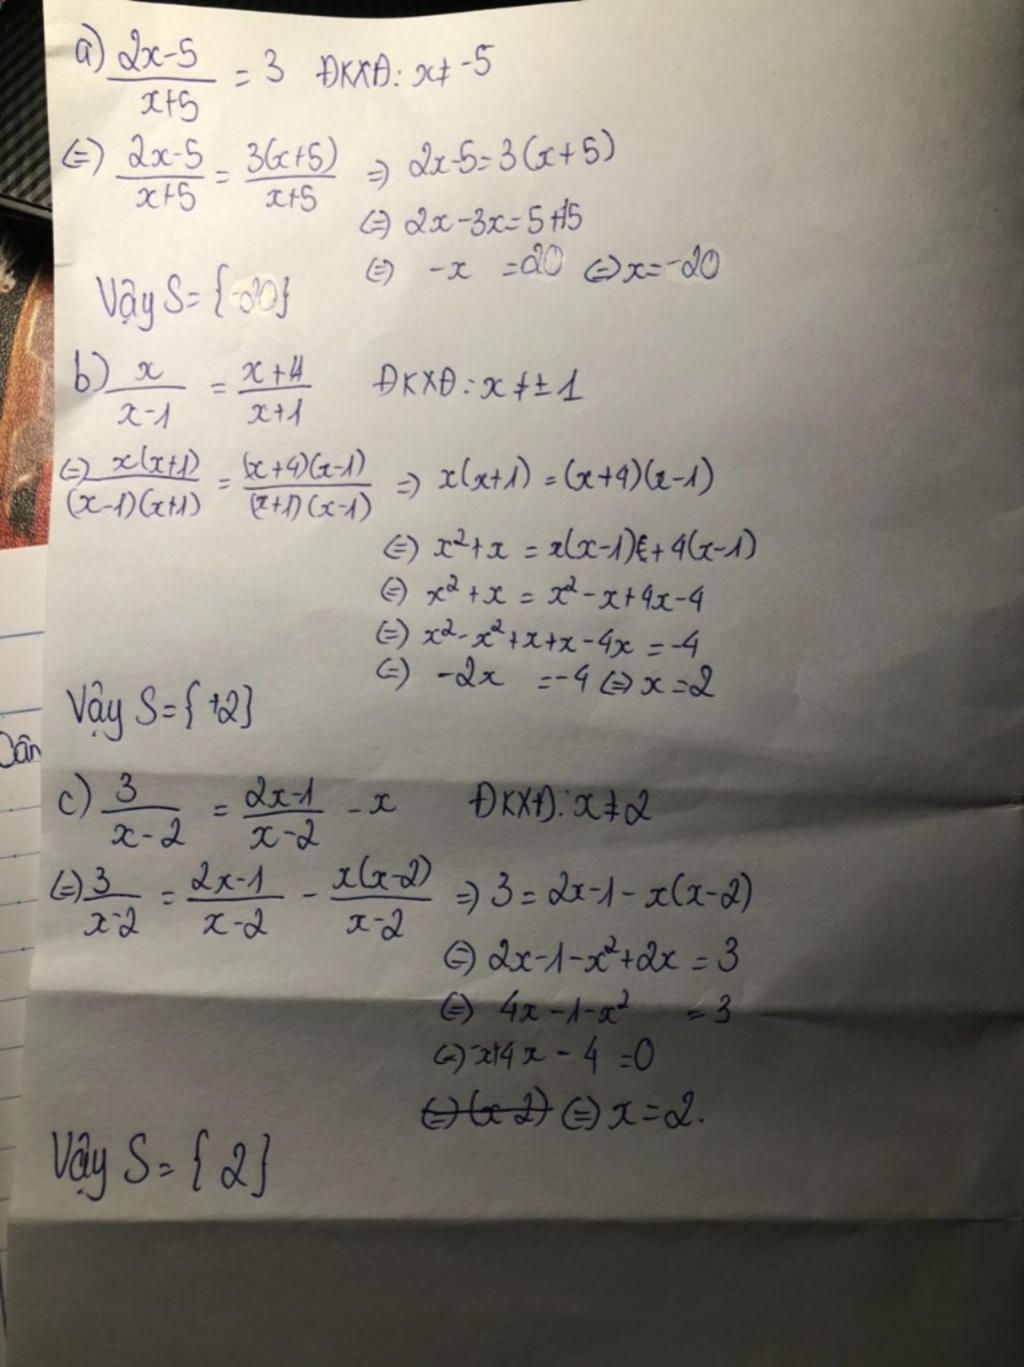 a) (2x-5)/(x+5) = 3 ĐKXĐ: x ≠ -5
(=) (2x-5)/(x+5) = 3(x+5)/(x+5) => 2x-5=3(x+5)
(=) 2x-3x=5+15
(=) -x =20 (=) x=-20
Vậy S={-20}
b) x/(x-1) = (x+4)/(x+1) ĐKXĐ: x ≠ ±1
(=) x(x+1)/(x-1)(x+1) = (x+4)(x-1)/(x+1)(x-1) => x(x+1) = (x+4)(x-1)
(=) x²+x = x(x-1)+4(x-1)
(=) x²+x = x²-x+4x-4
(=) x²-x²+x+x-4x =-4
(=) -2x =-4 (=) x=2
Vậy S={+2}
Dân
c) 3/(x-2) = (2x-1)/(x-2) - x ĐKXĐ: x ≠ 2
(=) 3/(x-2) = (2x-1)/(x-2) - x(x-2)/(x-2) => 3 = 2x-1-x(x-2)
(=) 2x-1-x²+2x = 3
(=) 4x-1-x² = 3
(=) -x²+4x-4 =0
(=) (x-2) (=) x=2.
Vậy S={2}